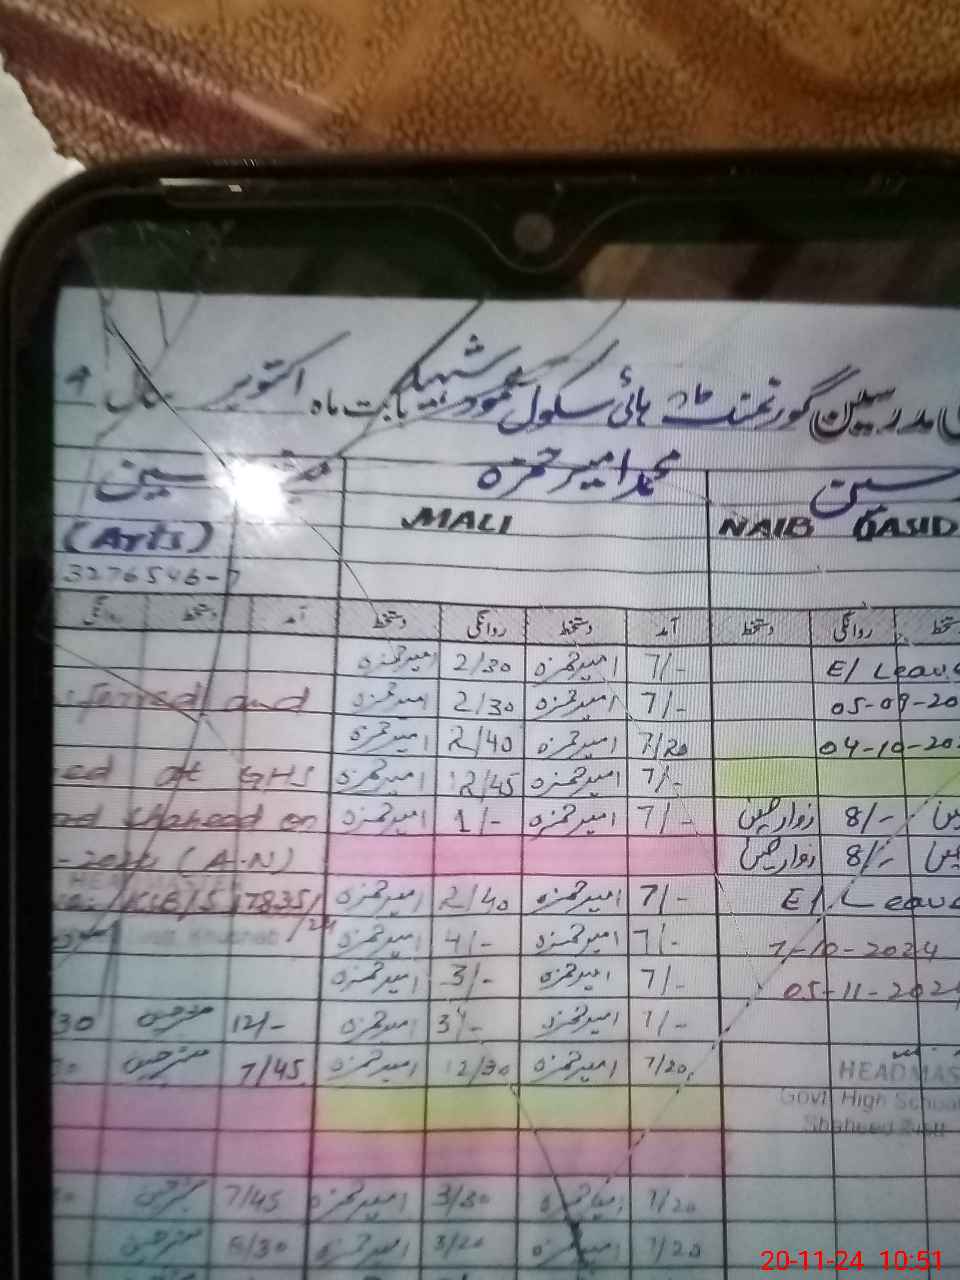 مدرسین گورنمنٹ ہائی سکول محمود شہید بابت ماہ اکتوبر
محمد امیر حمزہ
(Arts) MALI NAIB QASID
3276546-7
روانگی دستخط آمد دستخط روانگی دستخط آمد دستخط روانگی
امیر حمزہ 2/30 امیر حمزہ 7/- E/ Leave
and امیر حمزہ 2/30 امیر حمزہ 7/- 05-09-20
امیر حمزہ 2/40 امیر حمزہ 7/20 04-10-202
at GHS امیر حمزہ 12/45 امیر حمزہ 7/-
Shaheed on امیر حمزہ 1/- امیر حمزہ 7/- زوار حسین 8/-
(A.N) زوار حسین 8/-
KSB/S 17835/24 امیر حمزہ 2/40 امیر حمزہ 7/- E/ Leave
امیر حمزہ 4/- امیر حمزہ 7/- 7-10-2024
امیر حمزہ 3/- امیر حمزہ 7/- 05-11-2024
30 12/- امیر حمزہ 3/- امیر حمزہ 7/-
7/45 امیر حمزہ 12/30 امیر حمزہ 7/20
HEADMAS
Govt. High School
Shaheed
7/45 امیر حمزہ 3/30 امیر حمزہ 7/20
8/30 امیر حمزہ 3/20 امیر حمزہ 7/20
20-11-24 10:51